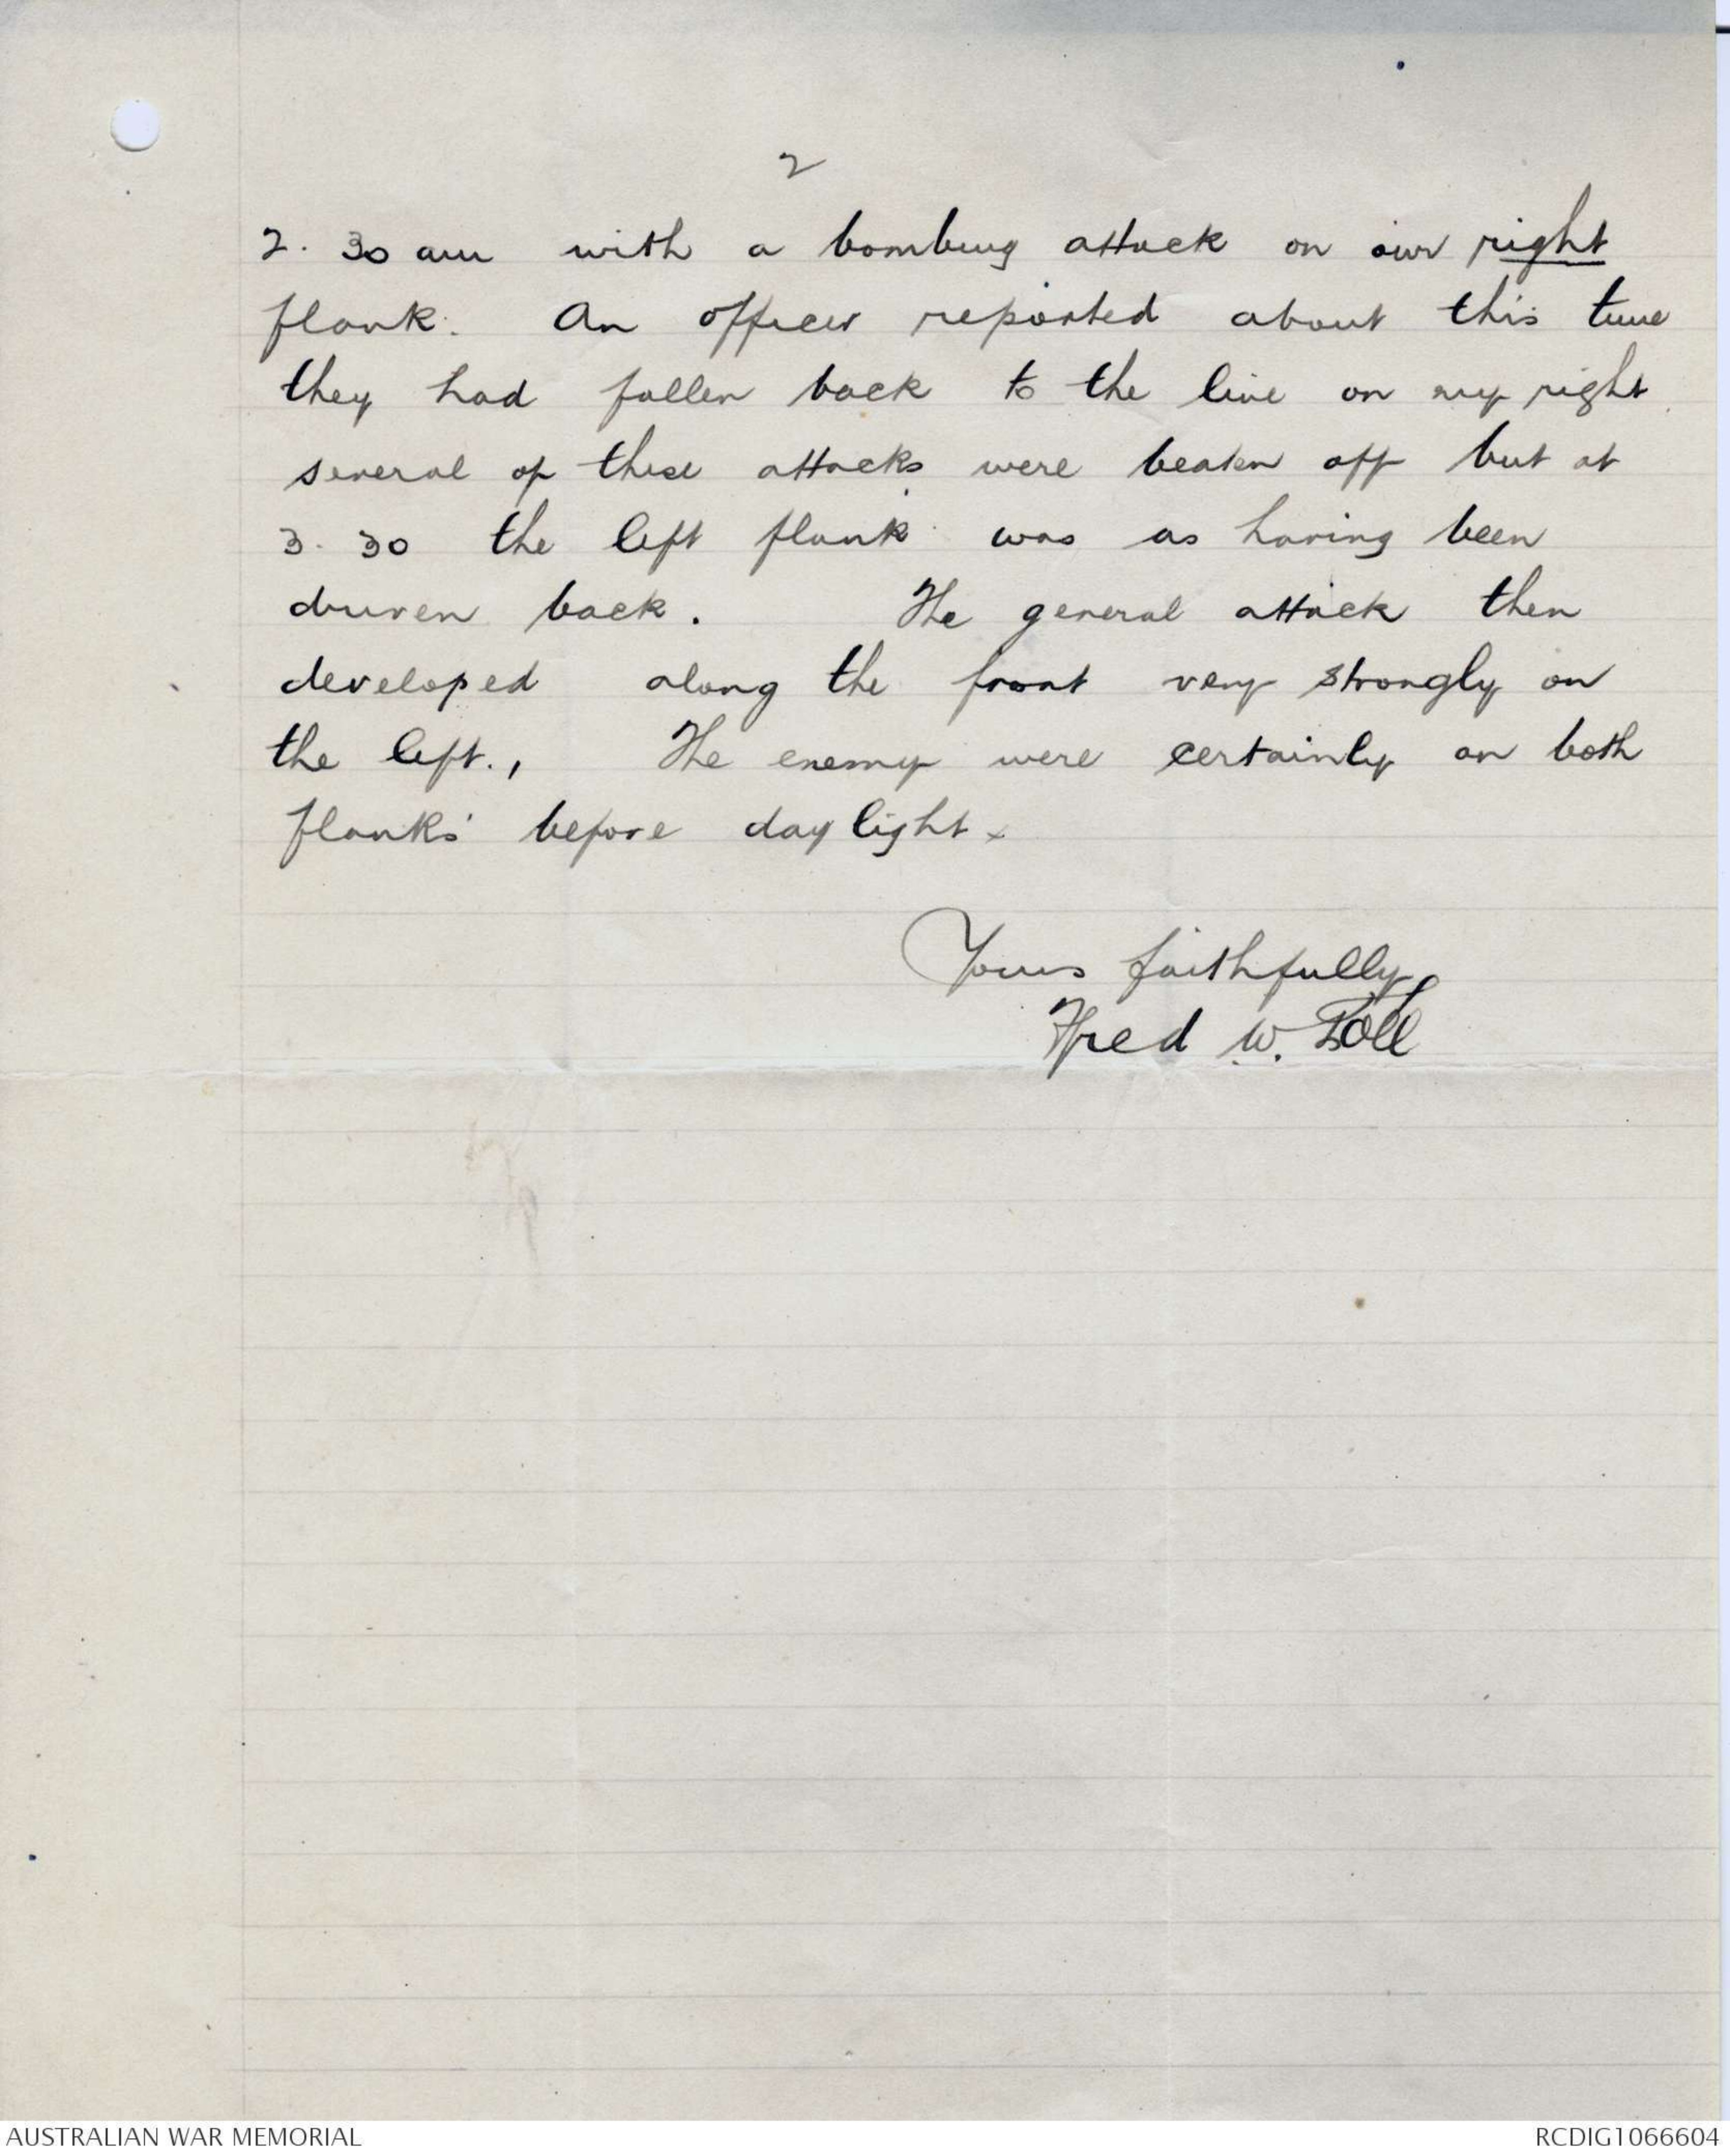 2
2. 30 am with a bombing attack on our right
flank. An officer reported about this time
they had fallen back to the line on my right
several of these attacks were beaten off but at
3. 30 the left flank was as having been
driven back. The general attack then
developed along the front very strongly on
the left., The enemy were certainly on both
flanks before daylight.
Yours faithfully,
Fred W.
AUSTRALIAN WAR MEMORIAL
RCDIG1066604